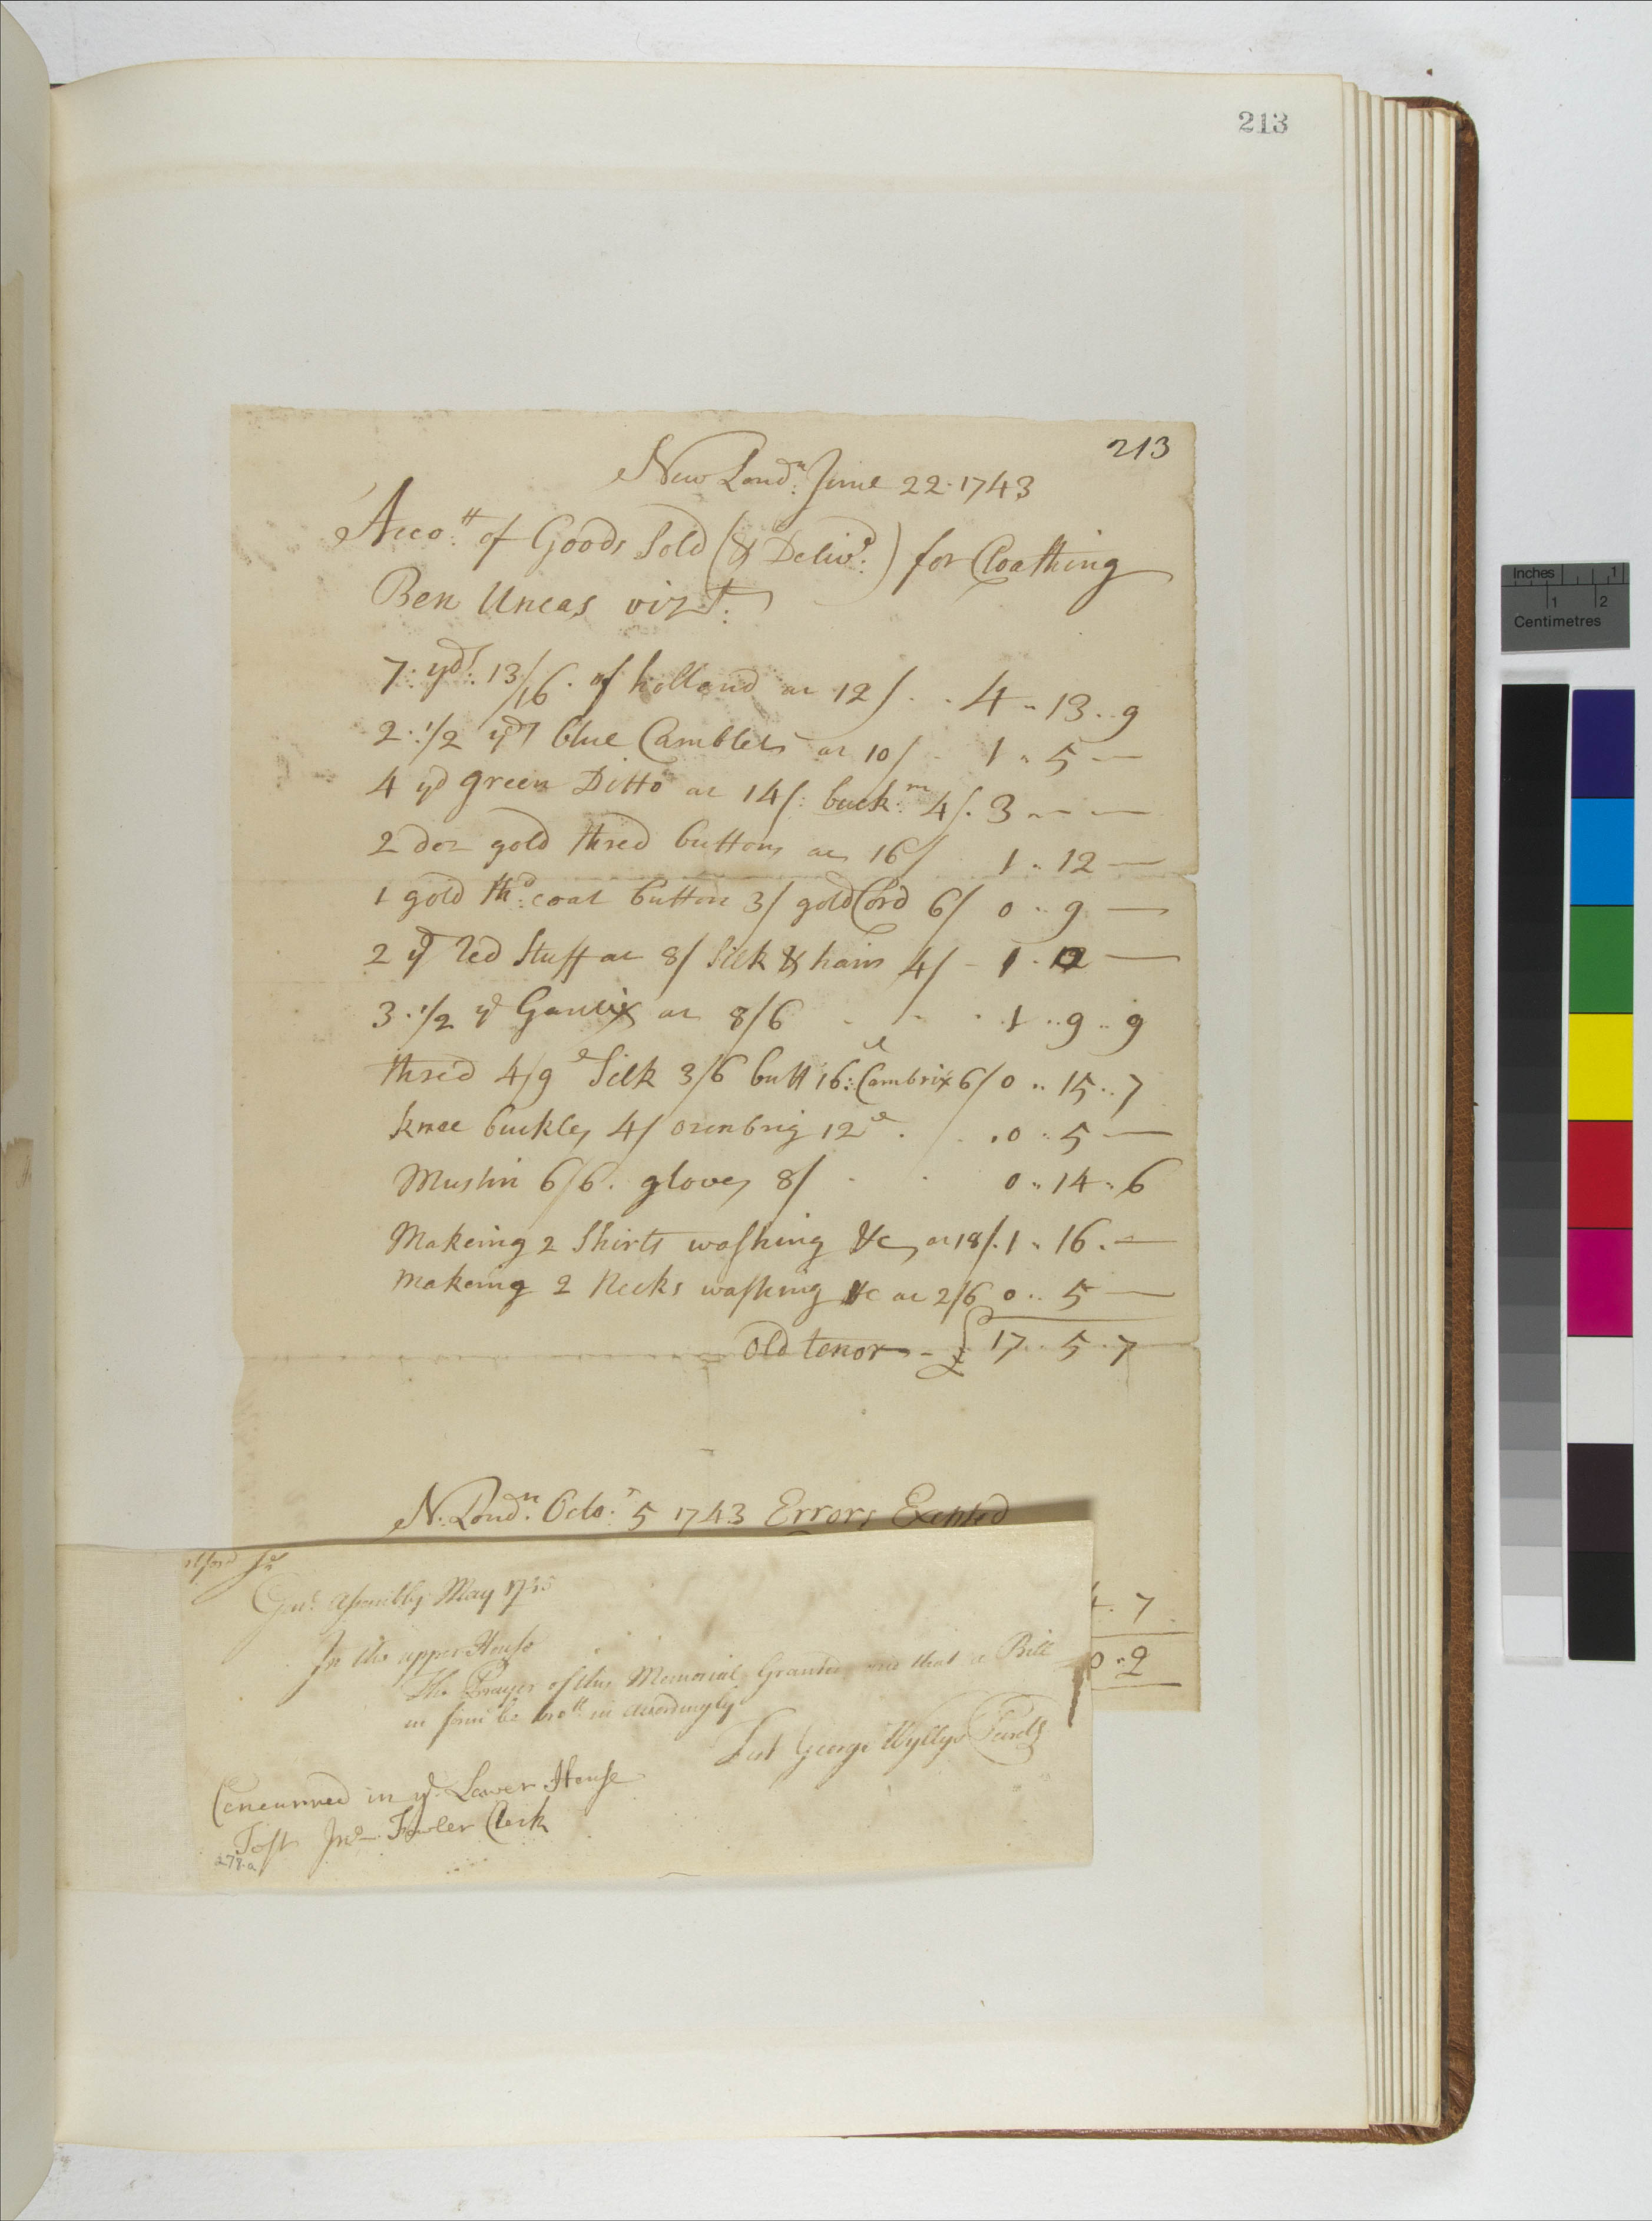 213
213
New Lond.n June 22. 1743
Acco.tt of Goods Sold (& Deliv.d) for Cloathing
Ben Uncas vizt.
7. yds. 13/16. of holland at 12/. . 4 .. 13 .. 9
2. 1/2 yd blue Camblets at 10/ - 1 .. 5 —
4 yd green Ditto at 14/: buck.m 4/. 3 .. — —
2 doz gold thred buttons at 16/ 1 .. 12 —
1 gold thd. coat button 3/ gold Cord 6/ 0 .. 9 —
2 yd Red Stuff at 8/ Silk & hair 4/ - 1 . —
3. 1/2 yd Garlix at 8/6 . . . 1 .. 9 .. 9
thred 4/9d Silk 3/6 butt 16:d Cambrix 6/ 0 .. 15 .. 7
knee buckles 4/ ozenbrig 12d . . 0 .. 5 —
Muslin 6/6. gloves 8/ . . 0 .. 14 .. 6
Makeing 2 Shirts washing &c, at 18/. 1 .. 16. —
makeing 2 Necks washing &c at 2/6 0 .. 5 —
Old tenor - £ 17 .. 5 .. 7
N. Lond.n Octo.r 5 1743 Errors Excpted
4. 7
0 .. 9
Gen.l Assembly May 1745
In the upper House
The Prayer of this Memorial Granted and that a Bill
in form be bro.tt in accordingly
Test George Wyllys Secrety
Concurred in ye Lower House
Test Jno. Fowler Clerk
278.a
Inches 1
1 2
Centimetres